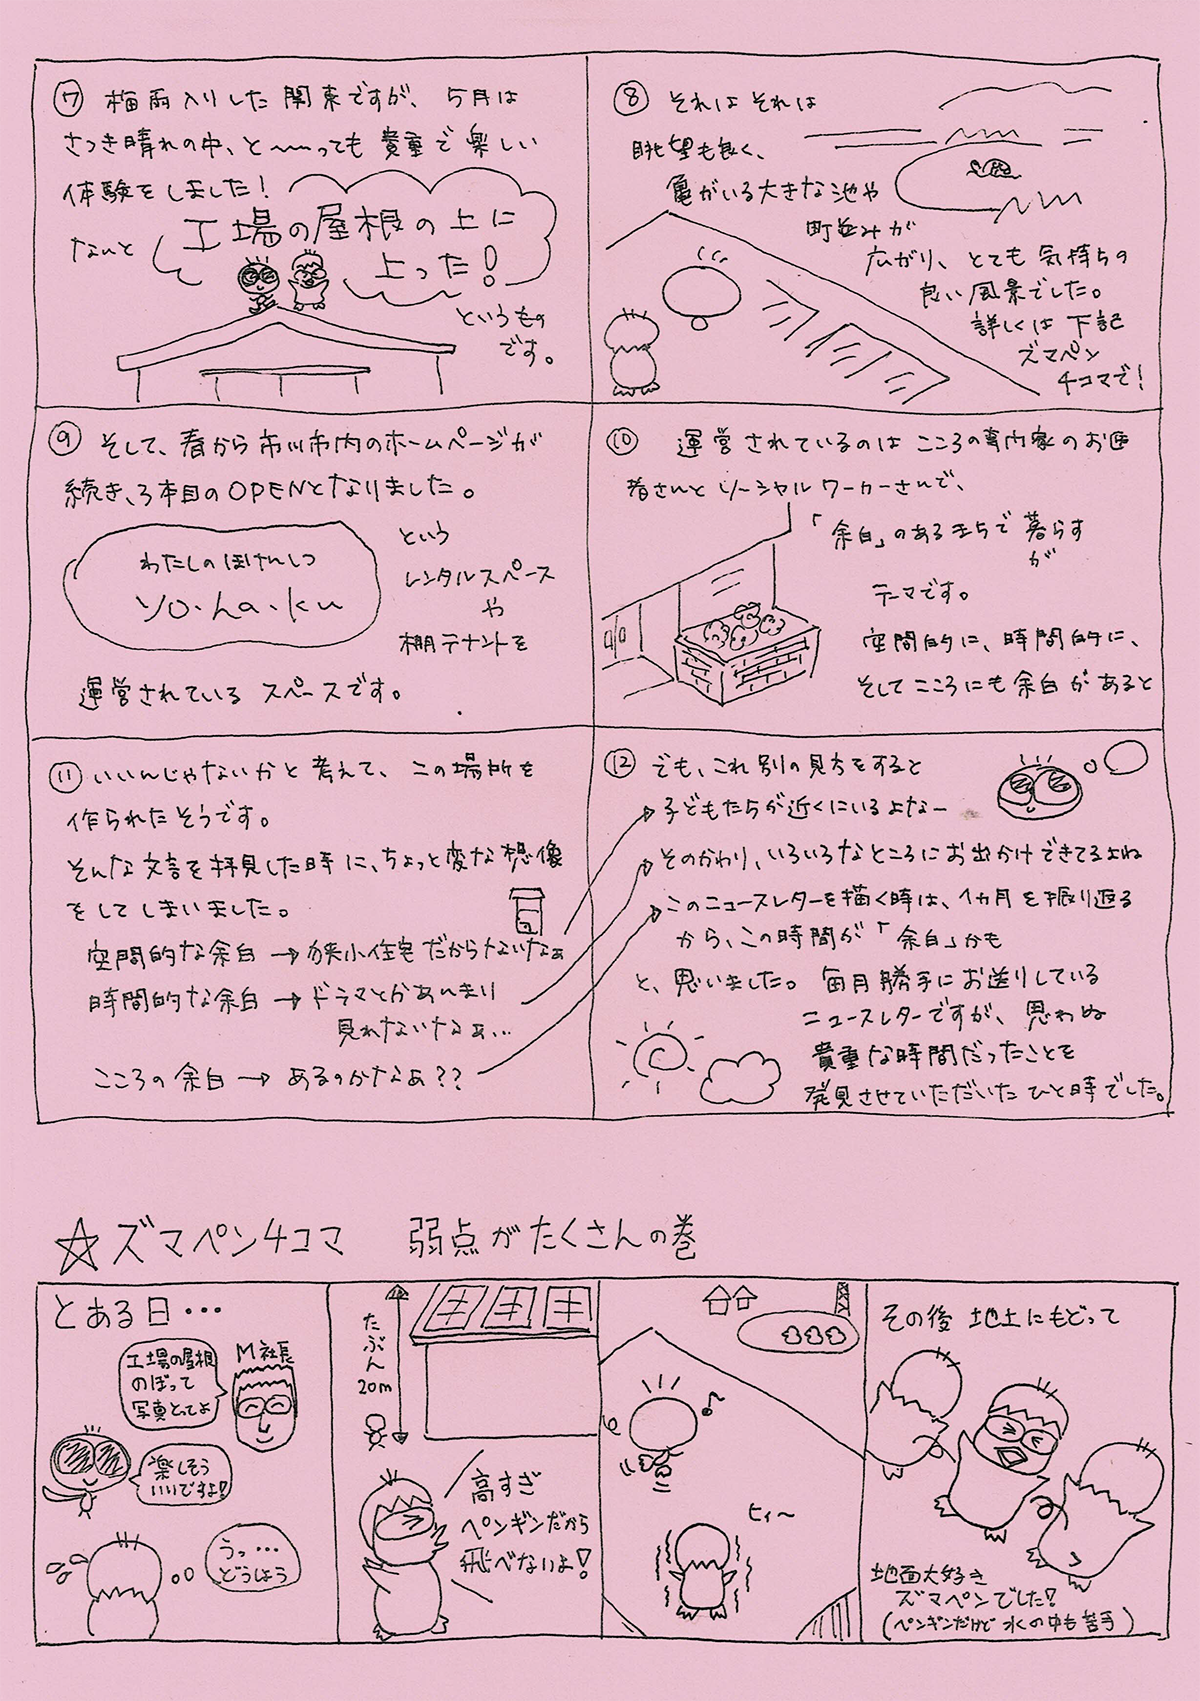 ⑦ 梅雨入りした関東ですが、5月は
さつき晴れの中、と〜〜っても貴重で楽しい
体験をしました!
なんと
工場の屋根の上に
上った!
というもの
です。
⑧ それはそれは
眺望も良く、
亀がいる大きな池や
町並みが
広がり、とても気持ちの
良い風景でした。
詳しくは下記
ズマペン
4コマで!
⑨ そして、春から市川市内のホームページが
続き、3本目のOPENとなりました。
わたしのほけんしつ
yo・ha・ku
という
レンタルスペース
や
棚テナントを
運営されているスペースです。
⑩ 運営されているのはこころの専門家のお医
者さんとソーシャルワーカーさんで、
「余白」のあるまちで暮らす
が
テーマです。
空間的に、時間的に、
そしてこころにも余白があると
⑪ いいんじゃないかと考えて、この場所を
作られたそうです。
そんな文言を拝見した時に、ちょっと変な想像
をしてしまいました。
空間的な余白→狭小住宅だからないなぁ
時間的な余白→ドラマとかあんまり
見れないなぁ...
こころの余白→あるのかなぁ??
⑫ でも、これ別の見方をすると
子どもたちが近くにいるよなー
そのかわり、いろいろなところにお出かけできてるよね
このニュースレターを描く時は、1ヵ月を振り返る
から、この時間が「余白」かも
と、思いました。毎月勝手にお送りしている
ニュースレターですが、思わぬ
貴重な時間だったことを
発見させていただいたひと時でした。
☆ズマペン4コマ 弱点がたくさんの巻
とある日・・・
M社長
工場の屋根
のぼって
写真とってよ
楽しそう
いいですよ!
うっ・・・
どうしよう
たぶん
20m
高すぎ
ペンギンだから
飛べないよ!
ヒィ〜
その後 地上にもどって
地面大好き
ズマペンでした!
(ペンギンだけど水の中も苦手)